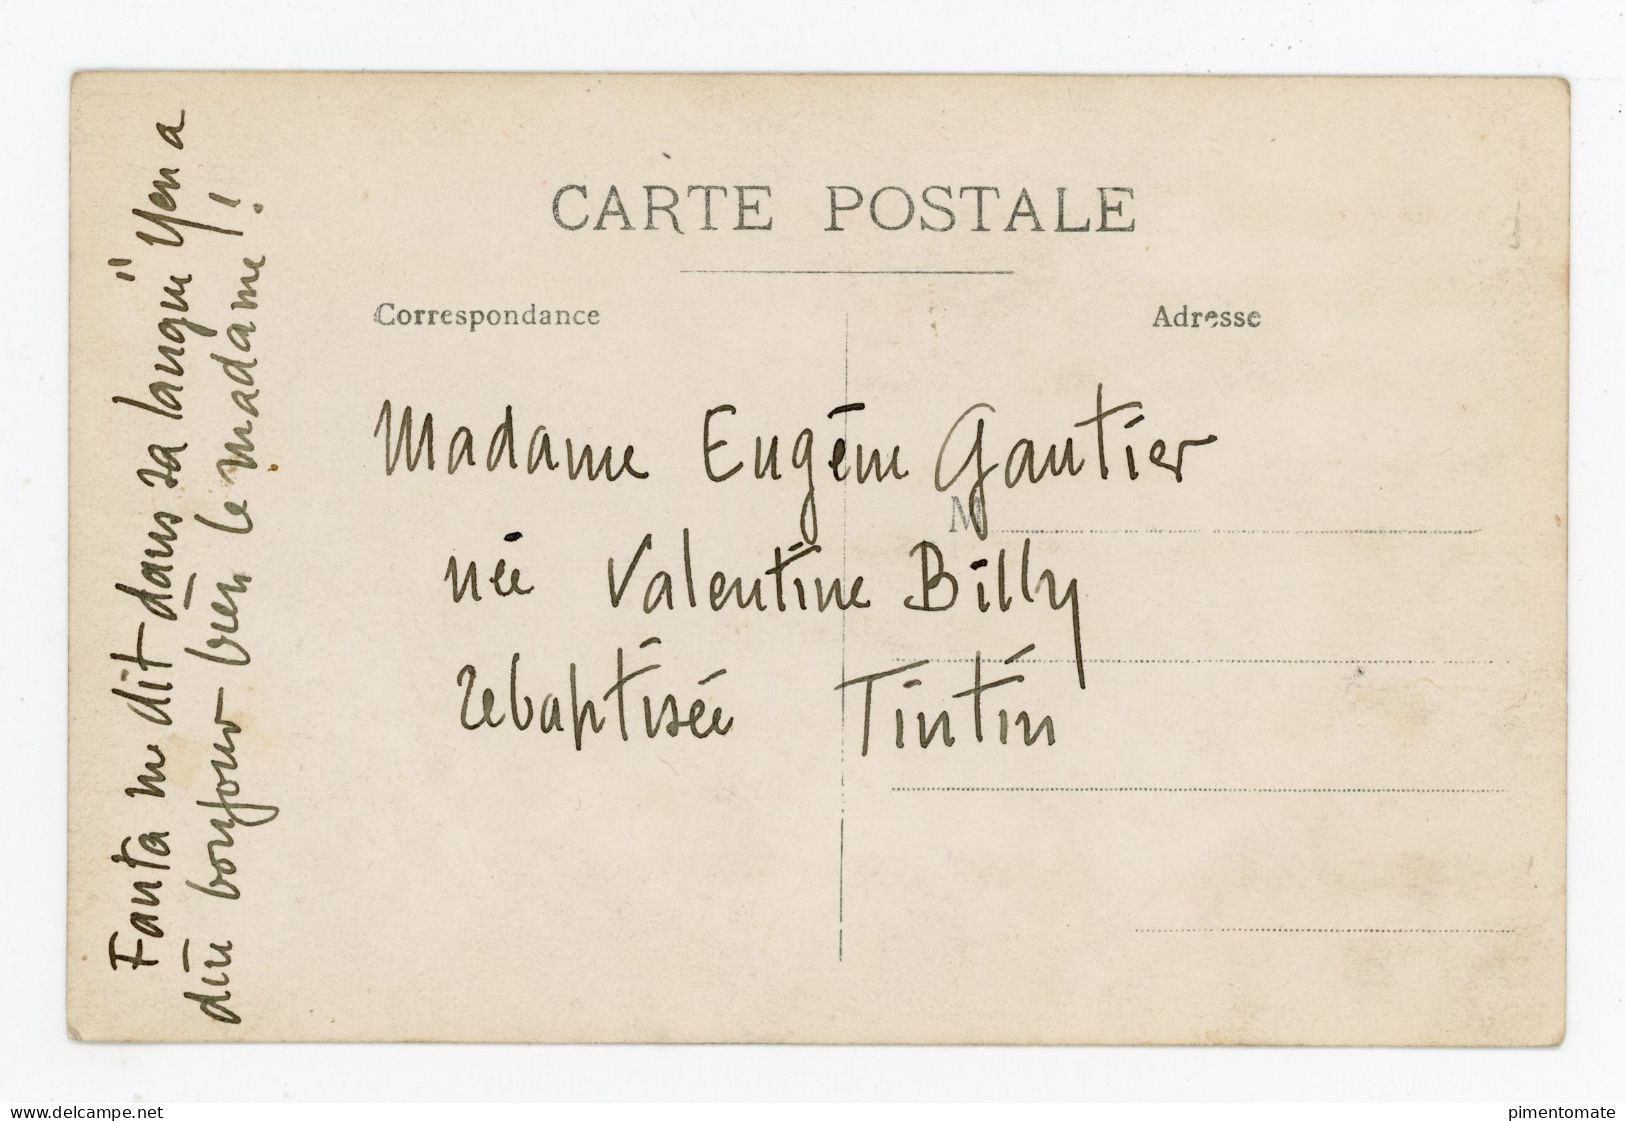 CARTE POSTALE
Correspondance
Adresse
Madame Eugène Gautier
M
née Valentine Billy
rebaptisée Tintin
Fanta me dit dans sa langue "Yen a
diu bonjour bien le madame!
www.delcampe.net
pimentomate